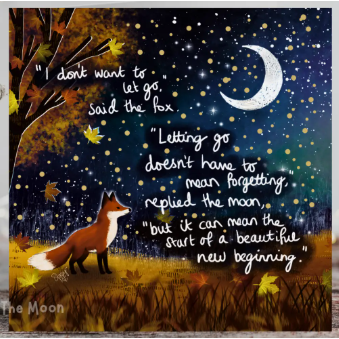 "I don't want to
let go,"
said the fox.
"Letting go
doesn't have to
mean forgetting,"
replied the moon,
"but it can mean the
start of a beautiful
new beginning."
The Moon